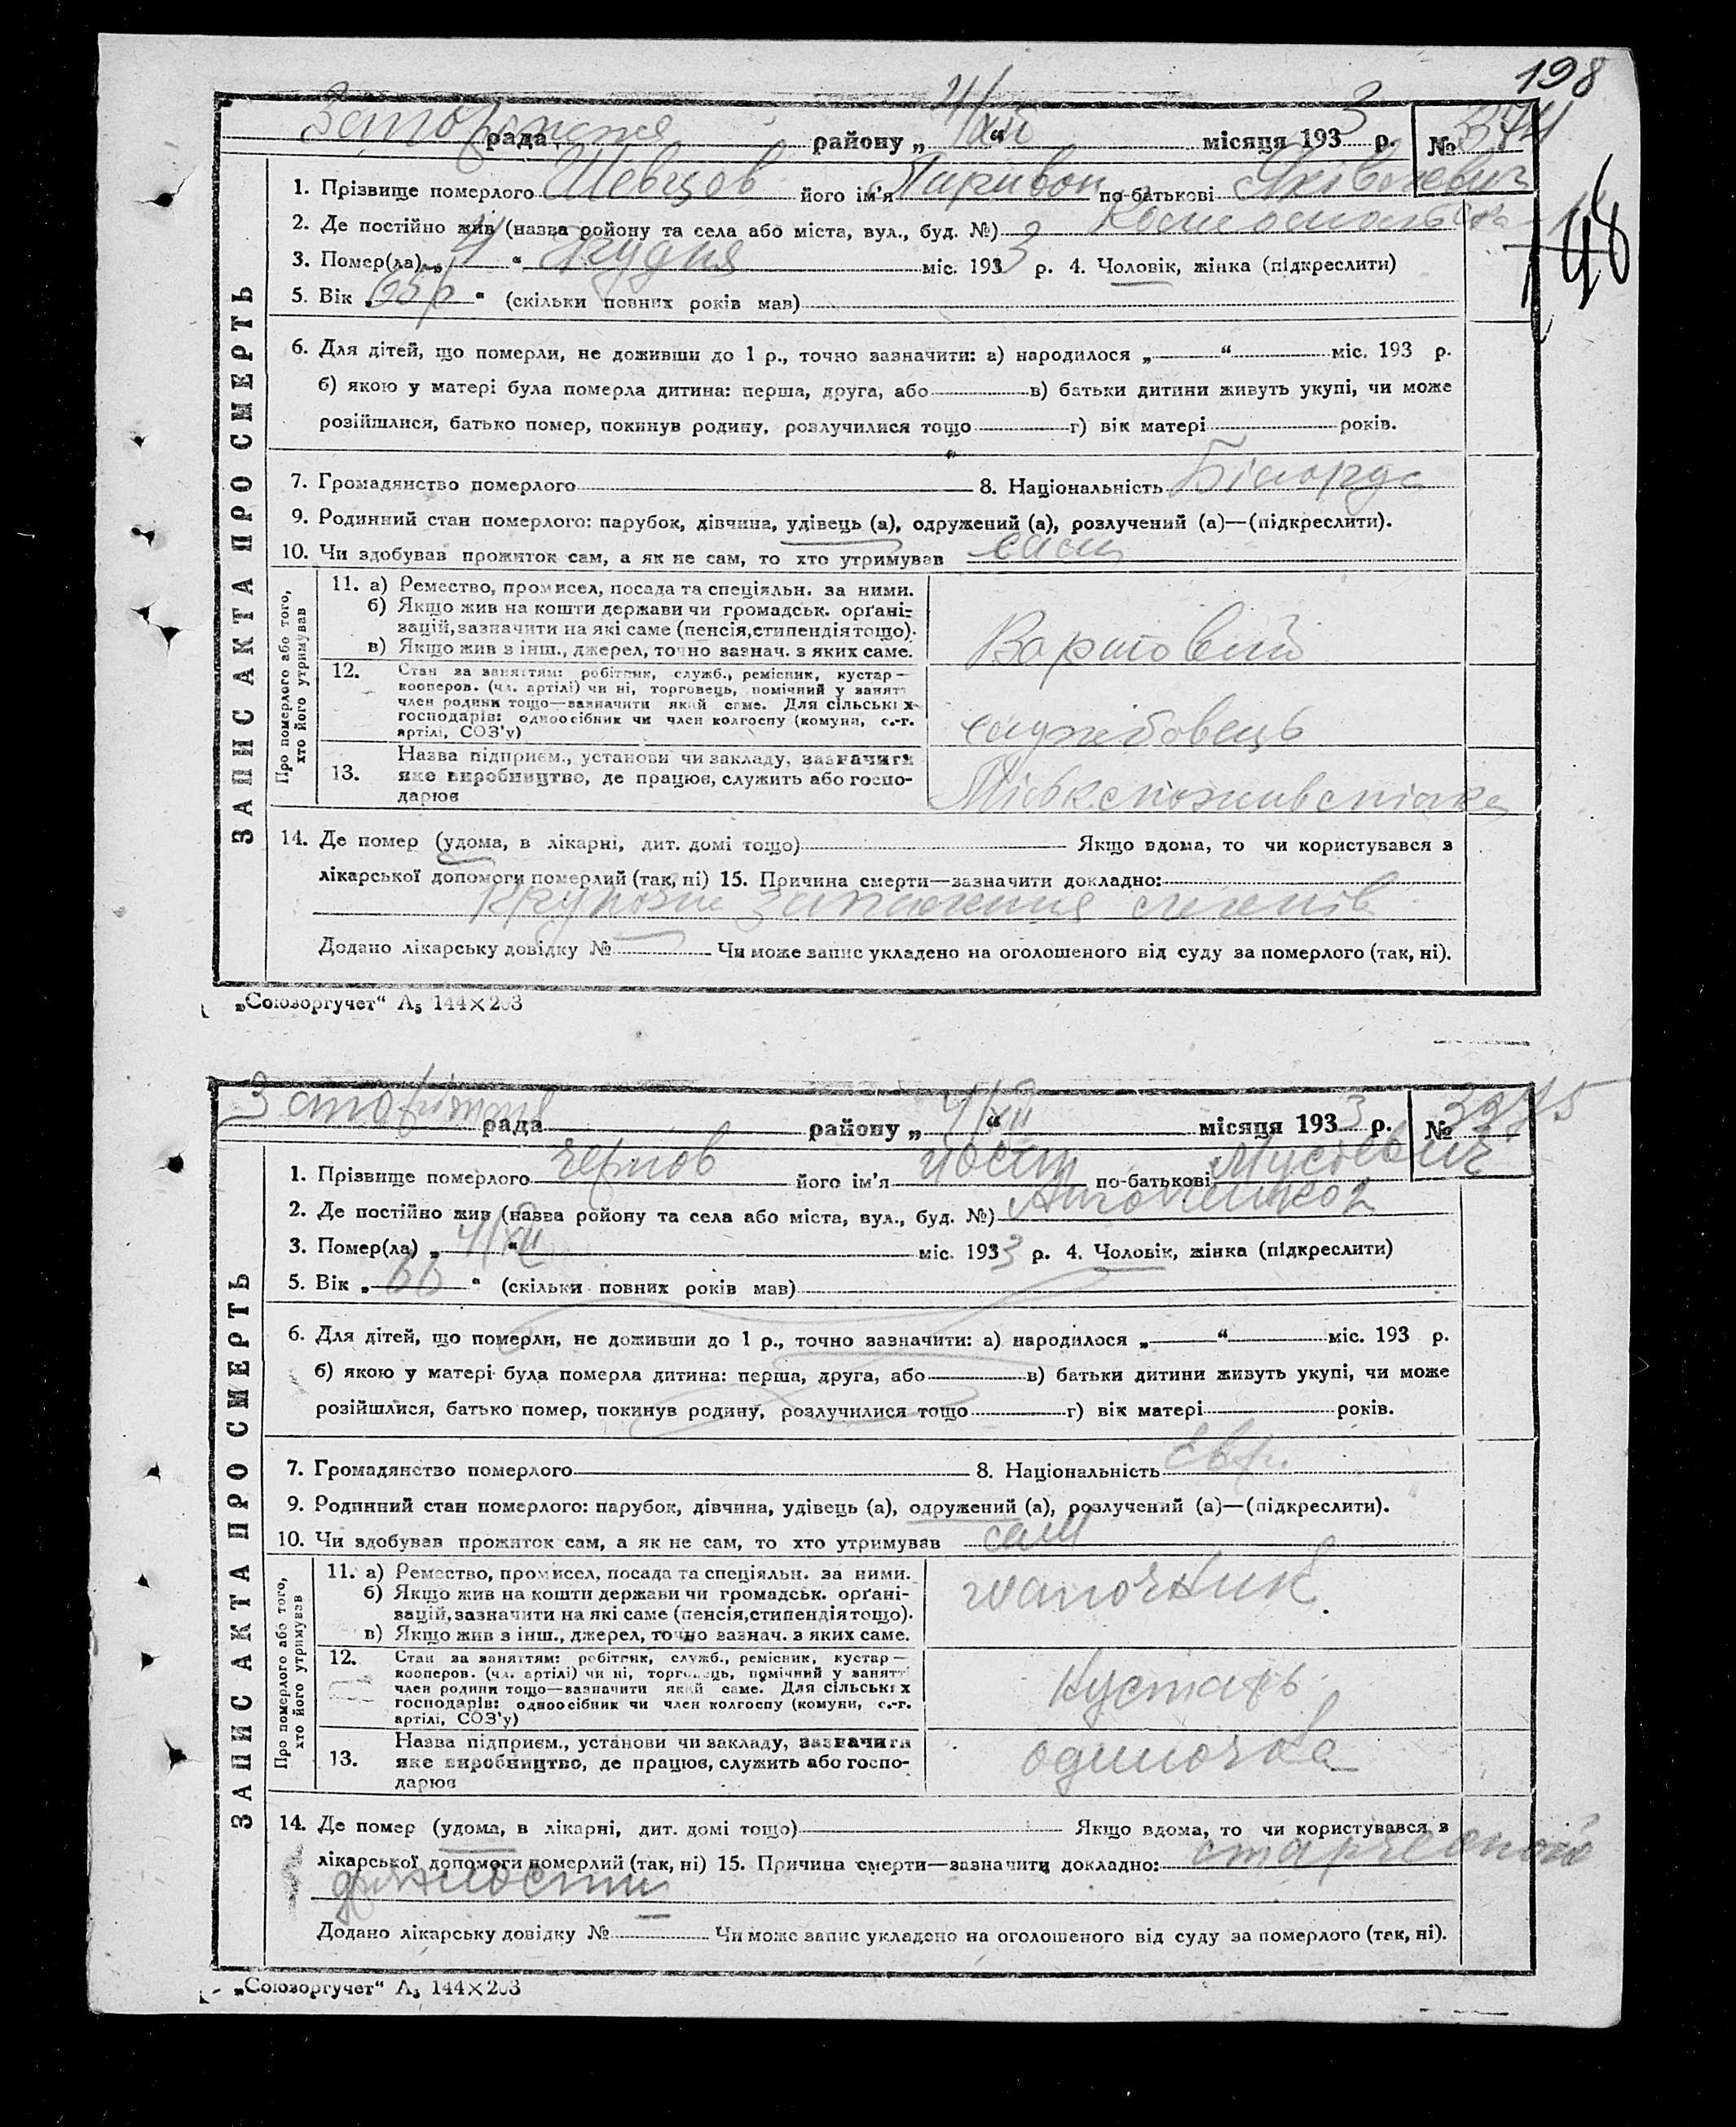 198
Запоріжжя рада району „ 4/XII “ місяця 1933 р. № 3974
1. Прізвище померлого Шевцов його ім'я Ларивон по-батькові Яківлевич
2. Де постійно жив (назва ройону та села або міста, вул., буд. №)
3. Помер(ла) „ 4 “ Грудня міс. 1933 р. 4. Чоловік, жінка (підкреслити)
5. Вік „ 65 р “ (скільки повних років мав)
6. Для дітей, що померли, не доживши до 1 р., точно зазначити: а) народилося „ “ міс. 193 р.
б) якою у матері була померла дитина: перша, друга, або в) батьки дитини живуть укупі, чи може
розійшлися, батько помер, покинув родину, розлучилися тощо г) вік матері років.
7. Громадянство померлого 8. Національність Білорус
9. Родинний стан померлого: парубок, дівчина, удівець (а), одружений (а), розлучений (а)—(підкреслити).
10. Чи здобував прожиток сам, а як не сам, то хто утримував сам
ЗАПИС АКТА ПРО СМЕРТЬ
Про померлого або того,
хто його утримував
11. а) Ремество, промисел, посада та спеціяльн. за ними.
б) Якщо жив на кошти держави чи громадськ. орґані-
зацій, зазначити на які саме (пенсія, стипендія тощо).
в) Якщо жив з інш., джерел, точно зазнач. з яких саме.
Вартовий
12. Стан за заняттям: робітник, служб., ремісник, кустар—
кооперов. (чл. артілі) чи ні, торговець, помічний у занятт
член родини тощо—зазначити який саме. Для сільських
господарів: одноосібник чи член колгоспу (комуни, с.-г.
артілі, СОЗ'у)
службовець
13. Назва підприєм., установи чи закладу, зазначити
яке виробництво, де працює, служить або госпо-
дарює
Міськспоживспілка
14. Де помер (удома, в лікарні, дит. домі тощо) Якщо вдома, то чи користувався з
лікарської допомоги померлий (так, ні) 15. Причина смерти—зазначити докладно:
Крупозне запалення легенів
Додано лікарську довідку № Чи може запис укладено на оголошеного від суду за померлого (так, ні).
„Союзоргучет“ А5 144×203
Запоріжжя рада району „ 4/XII “ місяця 1933 р. № 3975
1. Прізвище померлого Чернов його ім'я Йосип по-батькові Мусієвич
2. Де постійно жив (назва ройону та села або міста, вул., буд. №)
3. Помер(ла) „ 4/XII “ міс. 1933 р. 4. Чоловік, жінка (підкреслити)
5. Вік „ 66 “ (скільки повних років мав)
6. Для дітей, що померли, не доживши до 1 р., точно зазначити: а) народилося „ “ міс. 193 р.
б) якою у матері була померла дитина: перша, друга, або в) батьки дитини живуть укупі, чи може
розійшлися, батько помер, покинув родину, розлучилися тощо г) вік матері років.
7. Громадянство померлого 8. Національність Евр.
9. Родинний стан померлого: парубок, дівчина, удівець (а), одружений (а), розлучений (а)—(підкреслити).
10. Чи здобував прожиток сам, а як не сам, то хто утримував сам
ЗАПИС АКТА ПРО СМЕРТЬ
Про померлого або того,
хто його утримував
11. а) Ремество, промисел, посада та спеціяльн. за ними.
б) Якщо жив на кошти держави чи громадськ. орґані-
зацій, зазначити на які саме (пенсія, стипендія тощо).
в) Якщо жив з інш., джерел, точно зазнач. з яких саме.
шапочник.
12. Стан за заняттям: робітник, служб., ремісник, кустар—
кооперов. (чл. артілі) чи ні, торговець, помічний у занятт
член родини тощо—зазначити який саме. Для сільських
господарів: одноосібник чи член колгоспу (комуни, с.-г.
артілі, СОЗ'у)
Кустарь
13. Назва підприєм., установи чи закладу, зазначити
яке виробництво, де працює, служить або госпо-
дарює
одиночка
14. Де помер (удома, в лікарні, дит. домі тощо) Якщо вдома, то чи користувався з
лікарської допомоги померлий (так, ні) 15. Причина смерти—зазначити докладно: старческой
дряхлости
Додано лікарську довідку № Чи може запис укладено на оголошеного від суду за померлого (так, ні).
„Союзоргучет“ А5 144×203